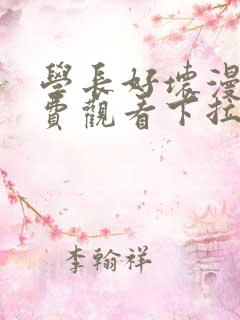 學長好壞漫
費觀看下拉
李翰祥